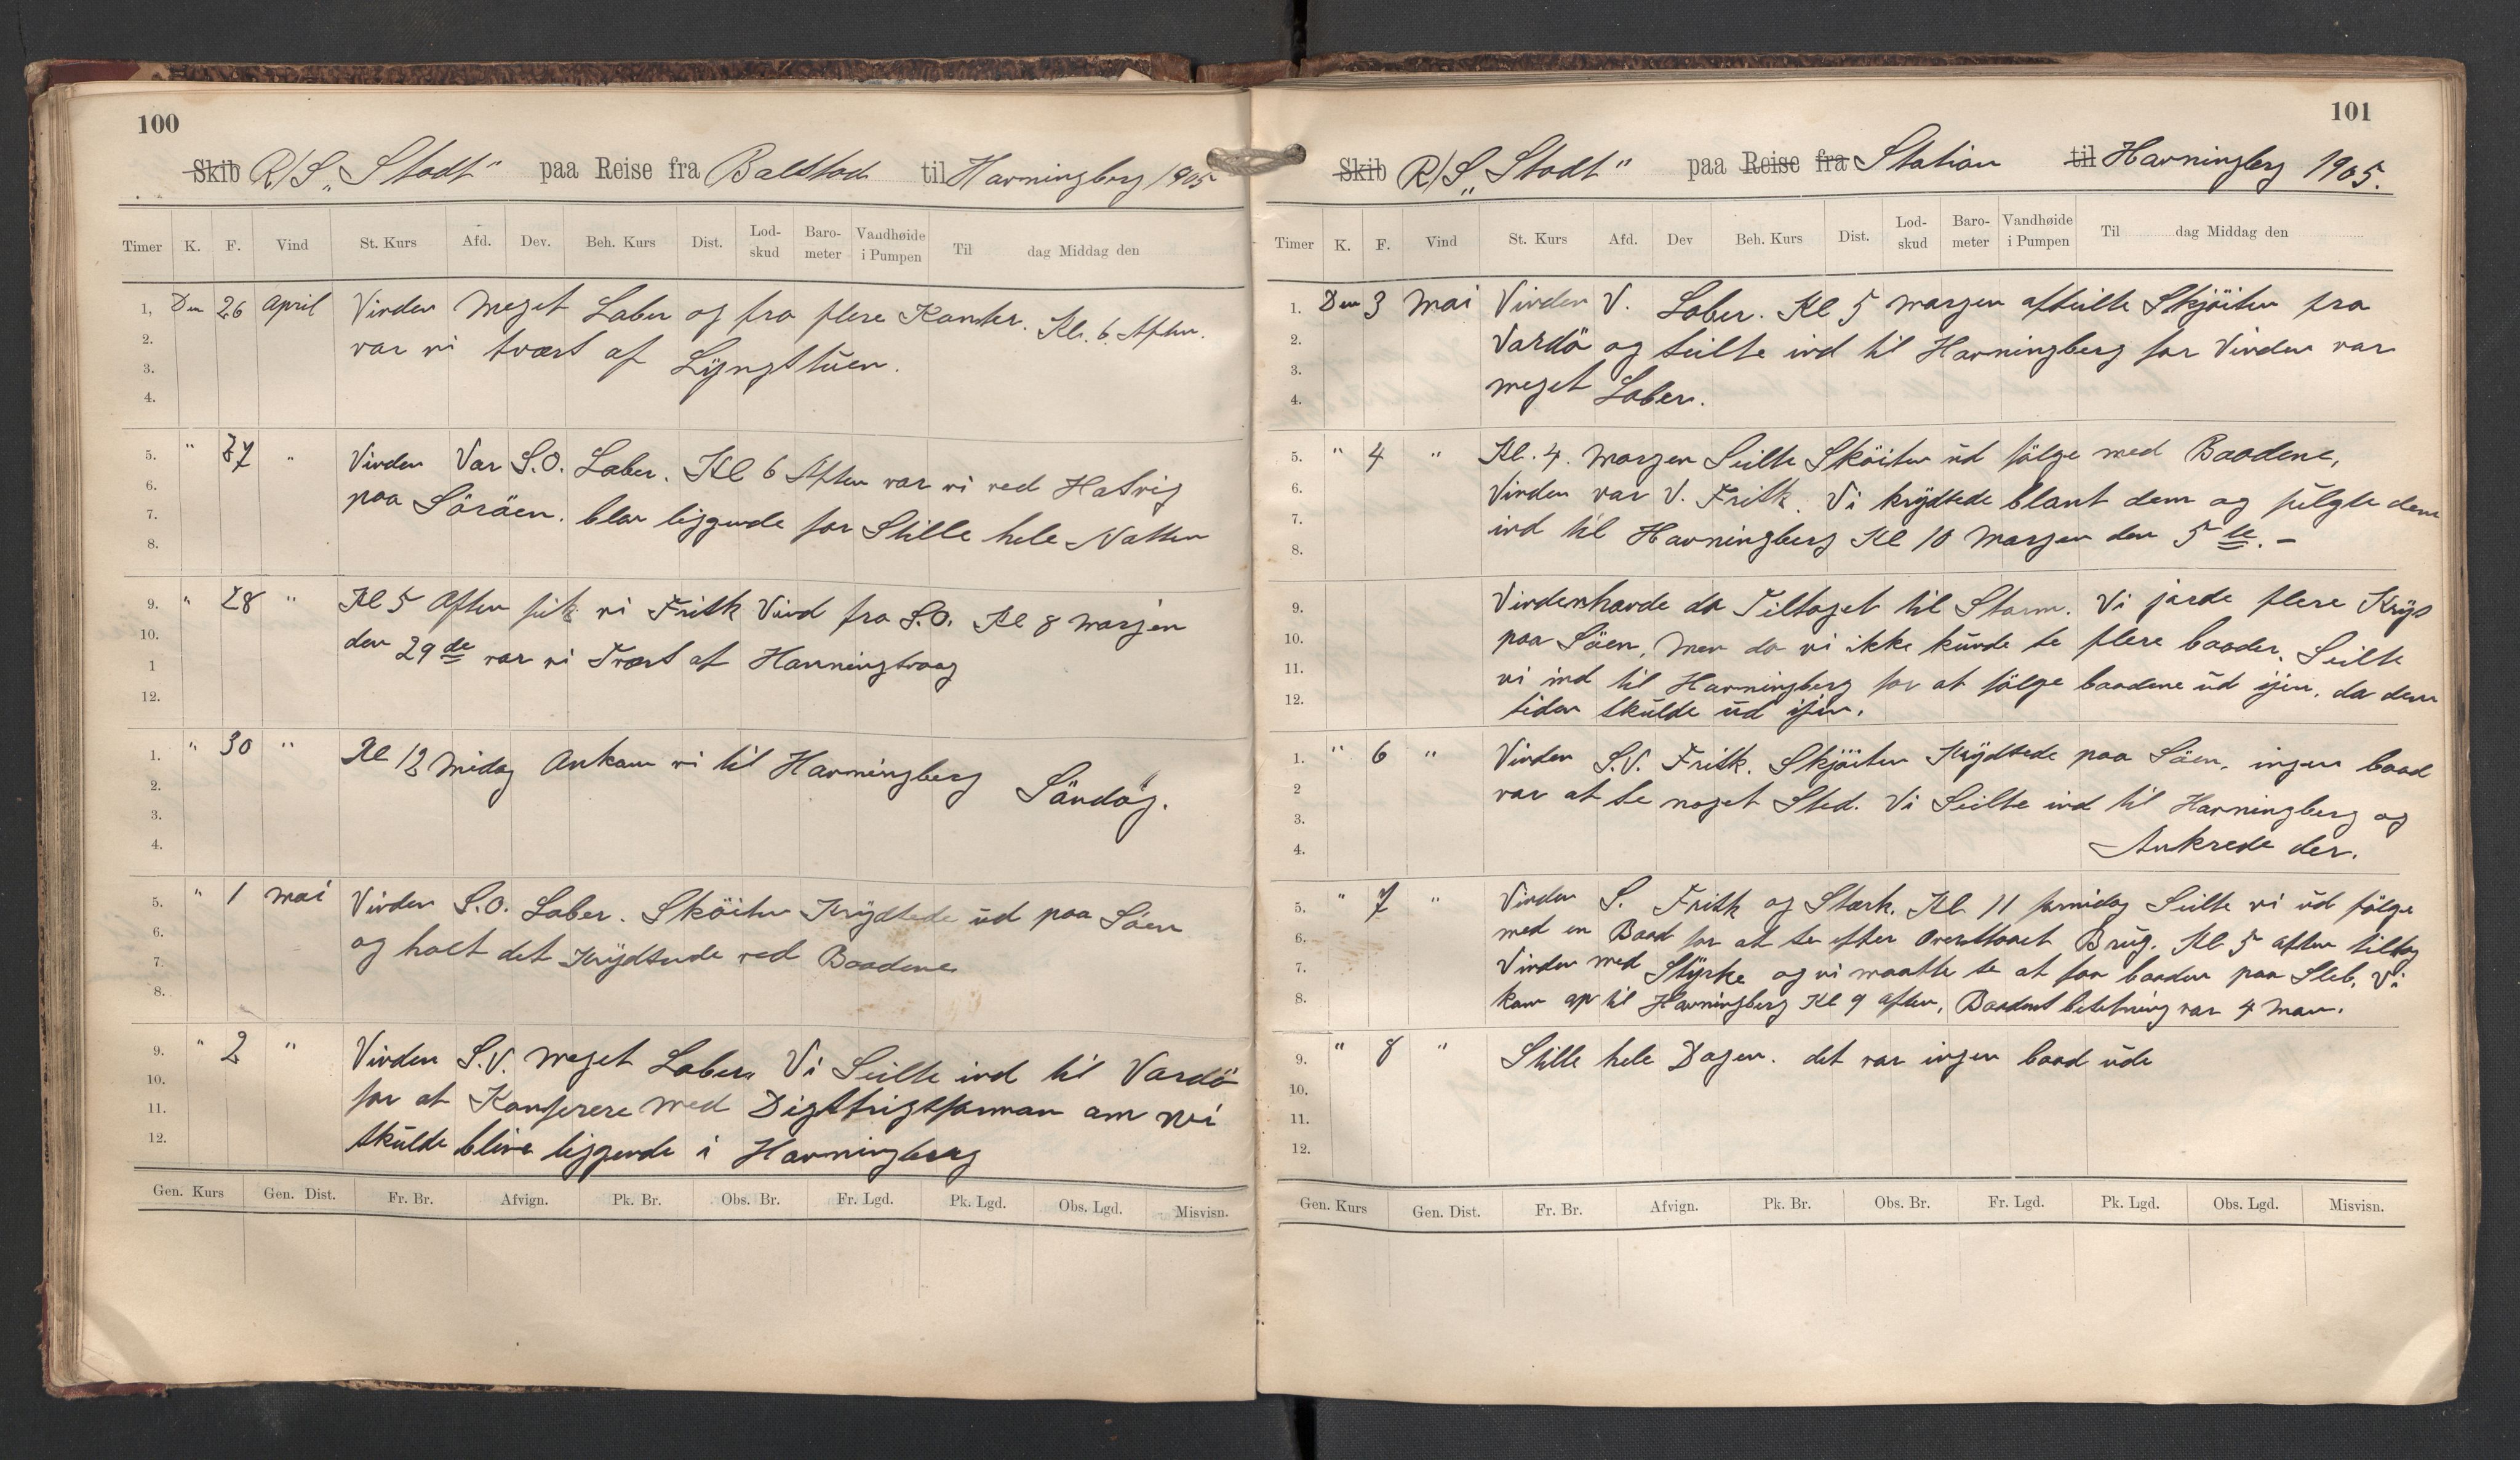 100
Skib R/S. „Stadt" paa Reise fra Balstad til Havningberg 1905
Timer K. F. Vind St. Kurs Afd. Dev. Beh. Kurs Dist. Lod-skud Baro-meter Vandhøide i Pumpen Til dag Middag den
1, Den 26 april Vinden meget Laber og fra flere Kanter. Kl. 6. Aften.
2. var vi tvært af Lyngstuen.
3.
4.
5. " 27 " Vinden Var S.O. Laber. Kl 6 Aften var vi ved Hasvig
6. paa Söröen. blev liggende for Stille hele Natten
7.
8.
9. " 28 " Kl 5 Aften fik vi Frisk Vind fra S.O. Kl 8 morjen
10. den 29de var vi Tvært af Hanningsvaag
1
12.
1. " 30 " Kl 12 midag Ankam vi til Havningberg Söndag.
2.
3.
4.
5. " 1 mai Vinden S.O. Laber. Sköiten Krydsede ud paa Söen
6. og holt det Krydsende ved Baadene
7.
8.
9. " 2 " Vinden S.V. meget Laber. Vi Seilte ind til Vardö
10. for at Konferere med Digstrigsforman om vi
11. skulde blive liggende i Havningberg
12.
Gen. Kurs Gen. Dist. Fr. Br. Afvign. Pk. Br. Obs. Br. Fr. Lgd. Pk. Lgd. Obs. Lgd. Misvisn.
101
Skib R/S „Stadt" paa Reise fra Station til Havningberg 1905.
Timer K. F. Vind St. Kurs Afd. Dev Beh. Kurs Dist. Lod-skud Baro-meter Vandhøide i Pumpen Til dag Middag den
1. Den 3 mai Vinden V. Laber. Kl 5 morgen afseilte Skjöiten fra
2. Vardö og seilte ind til Havningberg for Vinden var
3. meget Laber.
4.
5. " 4 " Kl. 4. morgen Seilte Sköiten ud fölge med Baadene,
6. Vinden var V. Frisk. Vi krydsede blant dem og fulgte dem
7. ind til Havningberg Kl 10 morgen den 5te. –
8.
9. Vinden havde da Tiltaget til Storm. Vi jorde flere Kryds
10. paa Söen, men da vi ikke kunde se flere baader, Seilte
11. vi ind til Havningberg for at fölge baadene ud igjen, da dem
12. siden skulde ud ijen.
1. " 6 " Vinden S.V. Frisk. Skjöiten Krydsede paa Söen, ingen baad
2 var at se noget Sted. Vi Seilte ind til Havningberg og
3. Ankrede der.
4.
5. " 7 " Vinden S. Frisk og Stærk. Kl 11 formidag Seilte vi ud fölge
6. med en Baad for at se efter Overstaaet Brug. Kl 5 aften tiltog
7. Vinden med Styrke og vi maatte se at faa baaden paa Sleb, Vi
8. kam op til Havningberg Kl 9 aften, Baadens besetning var 4 man.
9. " 8 " Stille hele Dagen. det var ingen baad ude
10.
11.
12.
Gen. Kurs Gen. Dist. Fr. Br. Afvign. Pk. Br. Obs. Br. Fr. Lgd. Pk. Lgd. Obs. Lgd. Misvisn.